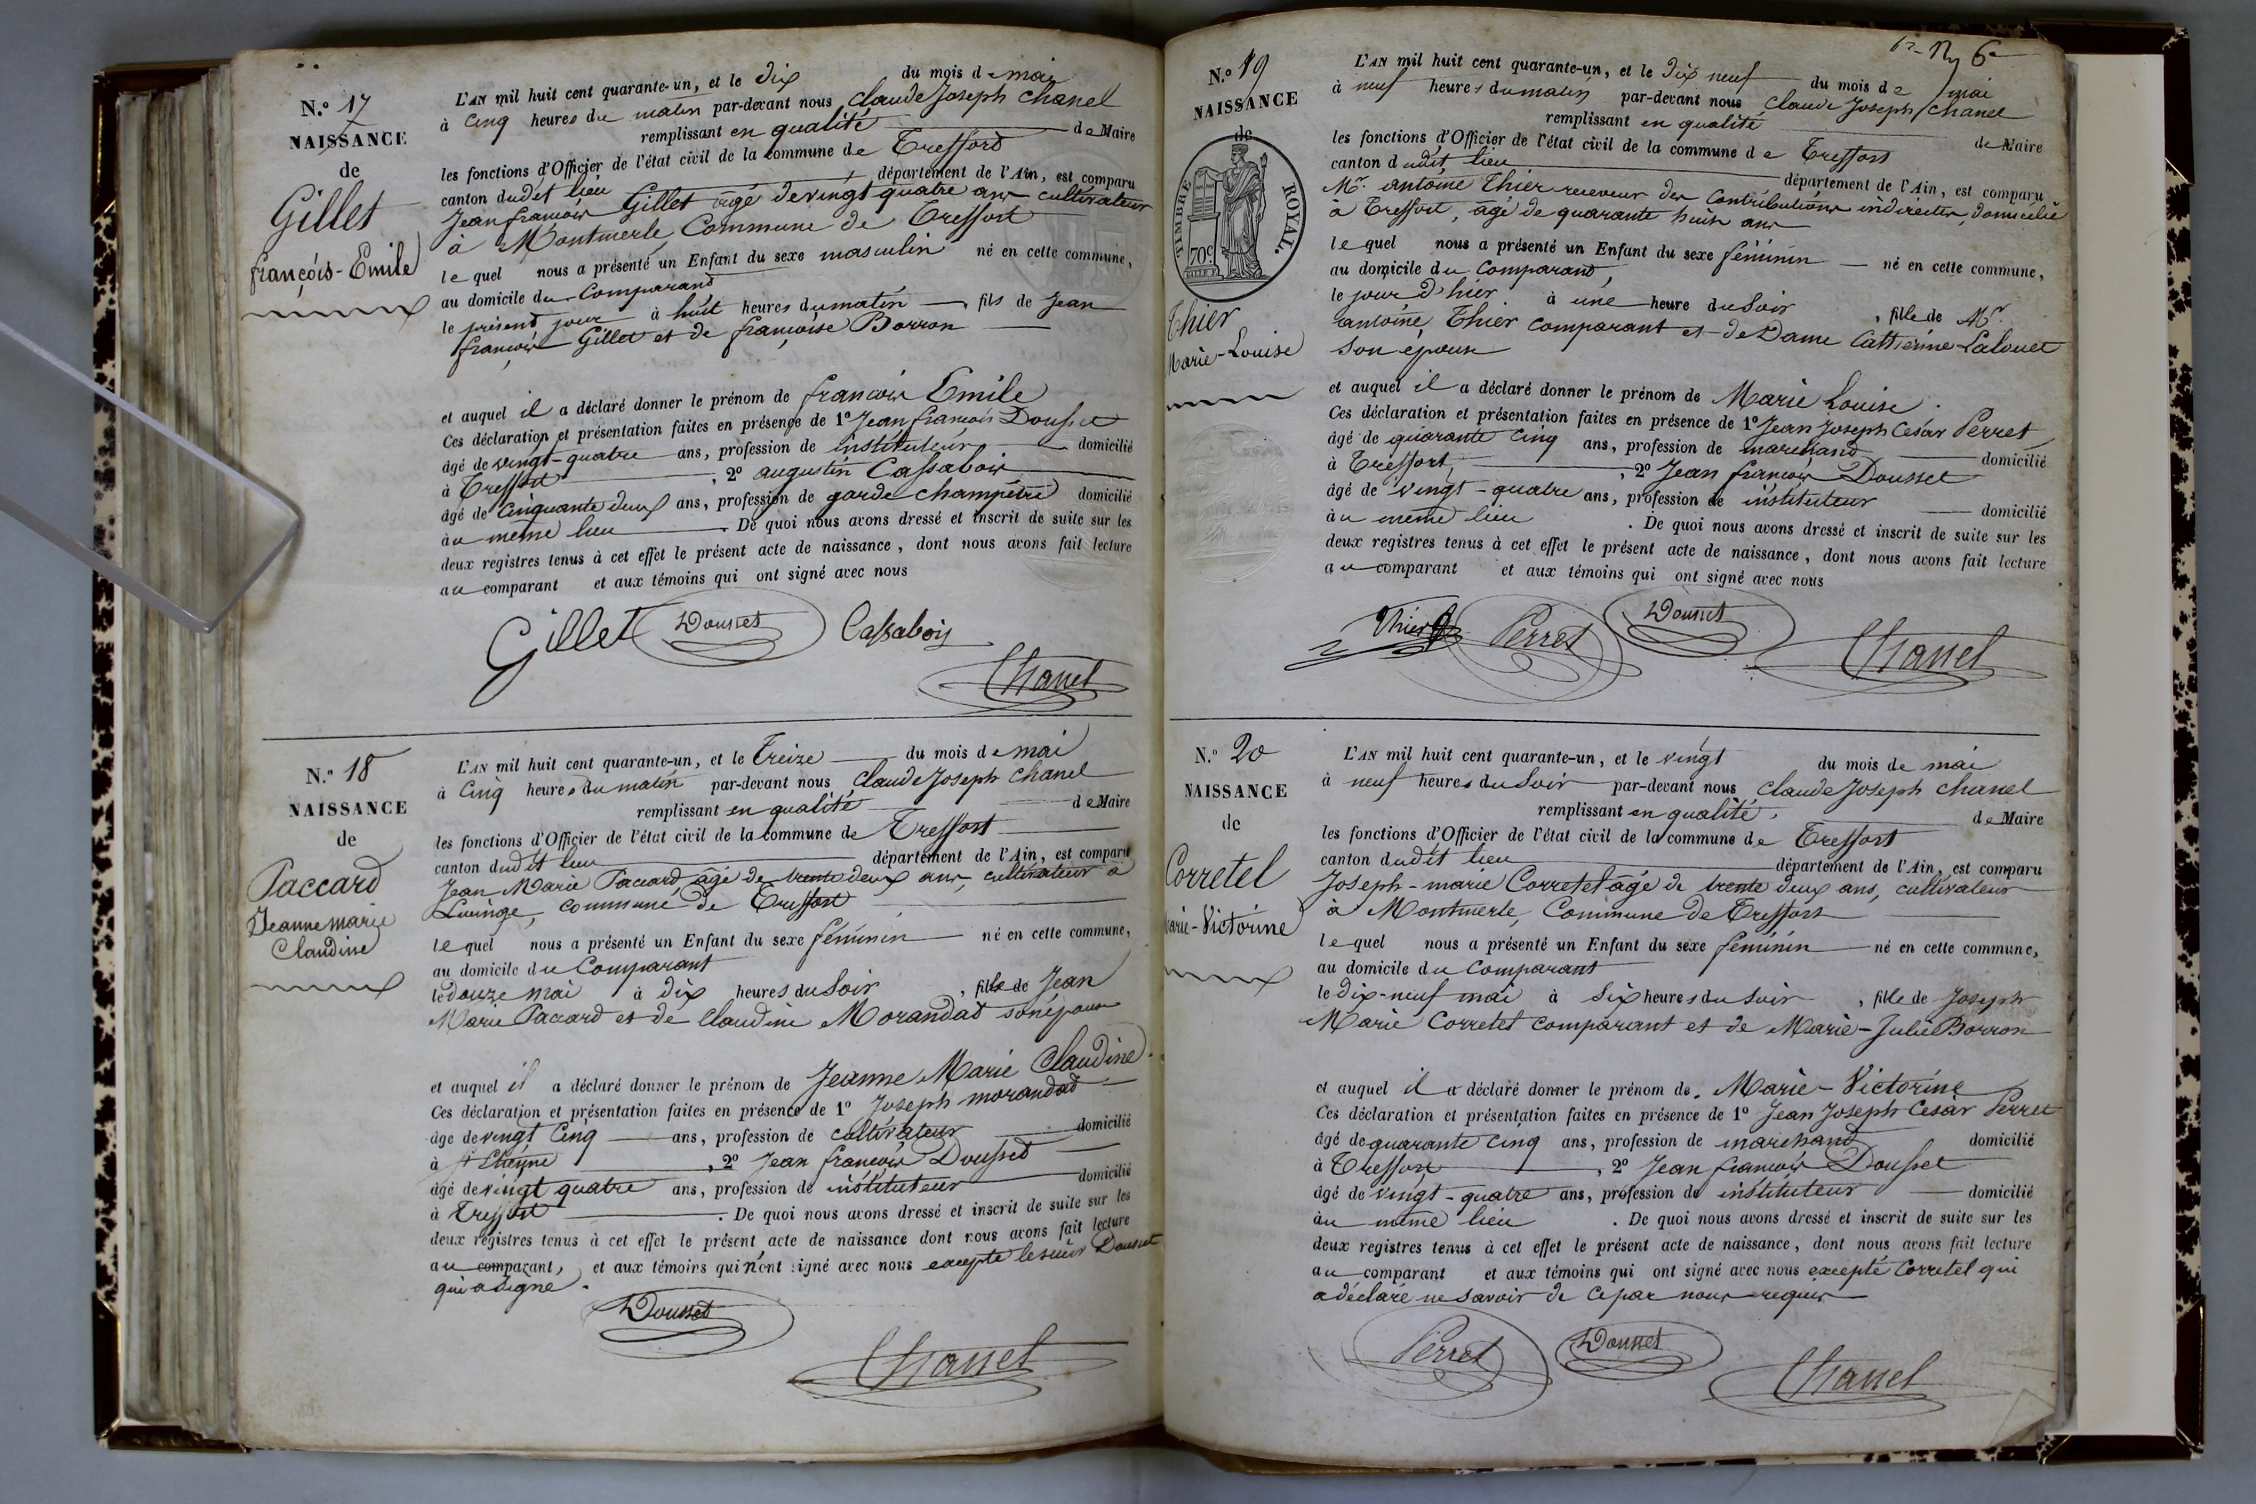 N.° 17
NAISSANCE
de
Gillet
françois-Emile
L'AN mil huit cent quarante-un, et le dix du mois de mai
à Cinq heures du matin par-devant nous Claude Joseph Chanel
remplissant en qualité de Maire
les fonctions d'Officier de l'état civil de la commune de Treffort
canton dudit lieu département de l'Ain, est comparu
Jean françois Gillet âgé de vingt quatre ans cultivateur
à Montmerle, Commune de Treffort
lequel nous a présenté un Enfant du sexe masculin né en cette commune,
au domicile du Comparand
le présent jour à huit heures du matin fils de Jean
françois Gillet et de françoise Borron
et auquel il a déclaré donner le prénom de françois Emile
Ces déclaration et présentation faites en présence de 1° Jean françois Dousset
âgé de vingt-quatre ans, profession de instituteur domicilié
à Treffort, 2° augustin Cassabois
âgé de Cinquante deux ans, profession de garde champêtre domicilié
au même lieu. De quoi nous avons dressé et inscrit de suite sur les
deux registres tenus à cet effet le présent acte de naissance, dont nous avons fait lecture
au comparant et aux témoins qui ont signé avec nous
Gillet Dousset Cassabois
Chanel
N.° 18
NAISSANCE
de
Paccard
Jeanne marie
Claudine
L'AN mil huit cent quarante-un, et le Treize du mois de mai
à Cinq heures du matin par-devant nous Claude Joseph Chanel
remplissant en qualité de Maire
les fonctions d'Officier de l'état civil de la commune de Treffort
canton dudit lieu département de l'Ain, est comparu
Jean Marie Paccard, âgé de trente deux ans, cultivateur à
Lucinge, commune de Treffort
lequel nous a présenté un Enfant du sexe féminin né en cette commune,
au domicile du Comparant
le douze mai à dix heures du Soir, fille de Jean
Marie Paccard et de Claudine Morandat son épouse
et auquel il a déclaré donner le prénom de Jeanne Marie Claudine.
Ces déclaration et présentation faites en présence de 1° Joseph morandat
âgé de vingt Cinq ans, profession de cultivateur domicilié
à St Etienne, 2° Jean françois Dousset
âgé de vingt quatre ans, profession de instituteur domicilié
à Treffort. De quoi nous avons dressé et inscrit de suite sur les
deux registres tenus à cet effet le présent acte de naissance dont nous avons fait lecture
au comparant, et aux témoins qui n'ont signé avec nous excepté le sieur Dousset
qui a signé.
Dousset
Chanel
6
N.° 19
NAISSANCE
de
TIMBRE ROYAL.
70c
Thier
Marie-Louise
L'AN mil huit cent quarante-un, et le Dix neuf du mois de mai
à neuf heures du matin par-devant nous Claude Joseph Chanel
remplissant en qualité de Maire
les fonctions d'Officier de l'état civil de la commune de Treffort
canton dudit lieu département de l'Ain, est comparu
Mr. antoine Thier receveur des Contributions indirectes, domicilié
à Treffort, âgé de quarante huit ans
lequel nous a présenté un Enfant du sexe féminin né en cette commune,
au domicile du Comparant,
le jour d'hier à une heure du Soir, fille de Mr.
antoine Thier comparant et de Dame Catherine Lalouet
son épouse
et auquel il a déclaré donner le prénom de Marie Louise.
Ces déclaration et présentation faites en présence de 1° Jean Joseph César Perret
âgé de quarante cinq ans, profession de marchand domicilié
à Treffort, 2° Jean françois Dousset
âgé de vingt-quatre ans, profession de instituteur domicilié
au même lieu. De quoi nous avons dressé et inscrit de suite sur les
deux registres tenus à cet effet le présent acte de naissance, dont nous avons fait lecture
au comparant et aux témoins qui ont signé avec nous
Thier Perret Dousset
Chanel
N.° 20
NAISSANCE
de
Corretel
Marie-Victorine
L'AN mil huit cent quarante-un, et le vingt du mois de mai
à neuf heures du Soir par-devant nous Claude Joseph Chanel
remplissant en qualité de Maire
les fonctions d'Officier de l'état civil de la commune de Treffort
canton dudit lieu département de l'Ain, est comparu
Joseph-marie Corretel âgé de trente deux ans, cultivateur
à Montmerle, Commune de Treffort
lequel nous a présenté un Enfant du sexe féminin né en cette commune,
au domicile du Comparant
le dix-neuf mai à Six heures du Soir, fille de Joseph
Marie Corretel comparant et de Marie-Julie Borron
et auquel il a déclaré donner le prénom de Marie-Victorine
Ces déclaration et présentation faites en présence de 1° Jean Joseph César Perret
âgé de quarante cinq ans, profession de marchand domicilié
à Treffort, 2° Jean françois Dousset
âgé de vingt-quatre ans, profession de instituteur domicilié
au même lieu. De quoi nous avons dressé et inscrit de suite sur les
deux registres tenus à cet effet le présent acte de naissance, dont nous avons fait lecture
au comparant et aux témoins qui ont signé avec nous excepté Corretel qui
a déclaré ne savoir de ce par nous requis
Perret Dousset
Chanel